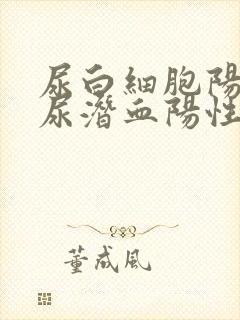 尿白細胞陽
尿潛血陽性
董成風